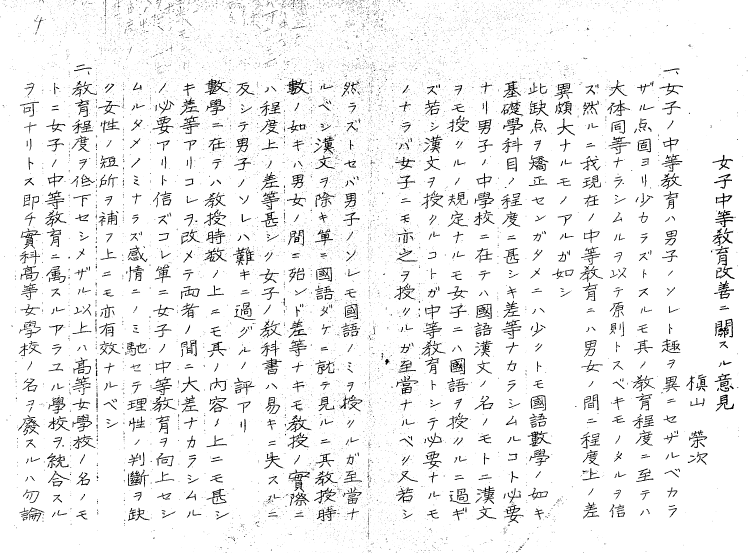 4
女子中等教育改善ニ關スル意見
槇山 榮次
一、女子ノ中等教育ハ男子ノソレト趣ヲ異ニセザルベカラ
ザル点固ヨリ少カラズトスルモ其ノ教育程度ニ至テハ
大体同等ナラシムルヲ以テ原則トスベキモノタルヲ信
ズ然ルニ我現在ノ中等教育ニハ男女ノ間ニ程度上ノ差
異頗大ナルモノアルガ如シ
此缺点ヲ矯正センガタメニハ少クトモ國語數學ノ如キ
基礎學科目ノ程度ニ甚シキ差等ナカラシムルコト必要
ナリ男子ノ中學校ニ在テハ國語漢文ノ名ノモトニ漢文
ヲモ授クルノ規定ナルモ女子ニハ國語ヲ授クルニ過ギ
ズ若シ漢文ヲ授クルコトガ中等教育トシテ必要ナルモ
ノナラバ女子ニモ亦之ヲ授クルガ至當ナルベク又若シ
然ラズトセバ男子ノソレモ國語ノミヲ授クルガ至當ナ
ルベシ漢文ヲ除キ單ニ國語ダケニ就テ見ルニ其教授時
數ノ如キハ男女ノ間ニ殆ンド差等ナキモ教授ノ實際ニ
ハ程度上ノ差等甚シク女子ノ教科書ハ易キニ失スルニ
反シテ男子ノソレハ難キニ過グルノ評アリ
數學ニ在テハ教授時數ノ上ニモ其ノ内容ノ上ニモ甚シ
キ差等アリコレヲ改メテ両者ノ間ニ大差ナカラシムル
ノ必要アリト信ズコレ單ニ女子ノ中等教育ヲ向上セシ
ムルタメノミナラズ感情ニノミ馳セテ理性ノ判斷ヲ缺
ク女性ノ短所ヲ補フ上ニモ亦有效ナルベシ
二、教育程度ヲ低下セシメザル以上ハ高等女學校ノ名ノモ
トニ女子ノ中等教育ニ属スルアラユル學校ヲ統合スル
ヲ可ナリトス即チ實科高等女學校ノ名ヲ廢スルハ勿論